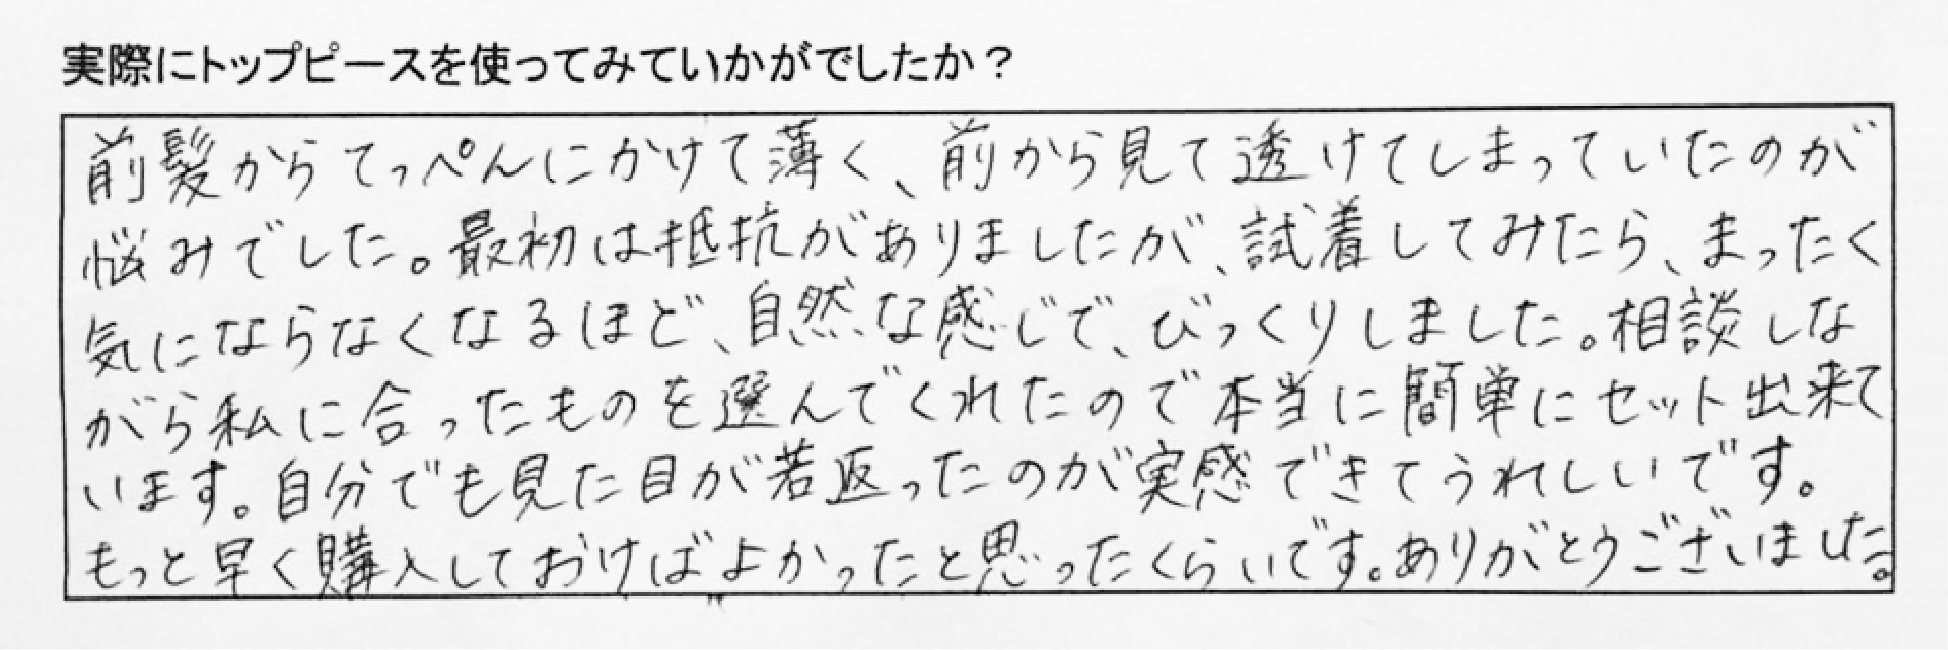 実際にトップピースを使ってみていかがでしたか？
前髪からてっぺんにかけて薄く、前から見て透けてしまっていたのが
悩みでした。最初は抵抗がありましたが、試着してみたら、まったく
気にならなくなるほど、自然な感じで、びっくりしました。相談しな
がら私に合ったものを選んでくれたので本当に簡単にセット出来て
います。自分でも見た目が若返ったのが実感できてうれしいです。
もっと早く購入しておけばよかったと思ったくらいです。ありがとうございました。